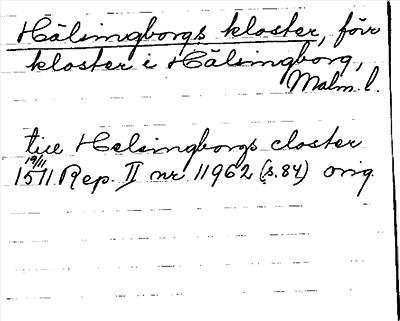 Hälsingborgs kloster, förr
kloster i Hälsingborg,
Malm. l.
till Helsingborgs closter
19/11
1511 Rep. II nr 11962 (s. 84) orig.